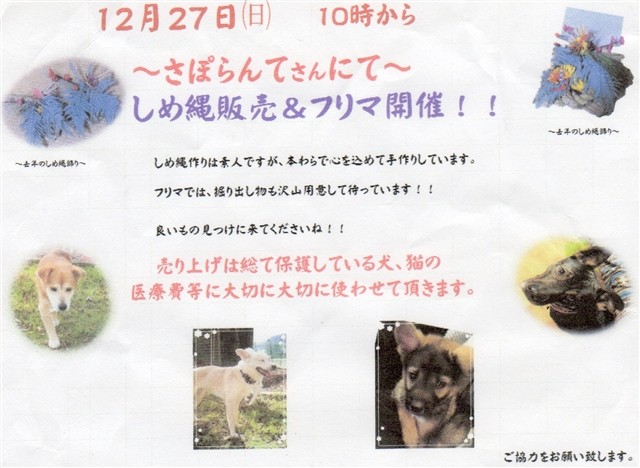 12月27日(日)　10時から
～さぽらんてさんにて～
しめ縄販売＆フリマ開催！！
～去年のしめ縄飾り～
～去年のしめ縄飾り～
しめ縄作りは素人ですが、本わらで心を込めて手作りしています。
フリマでは、掘り出し物も沢山用意して待っています！！
良いもの見つけに来てくださいね！！
売り上げは総て保護している犬、猫の
医療費等に大切に大切に使わせて頂きます。
ご協力をお願い致します。